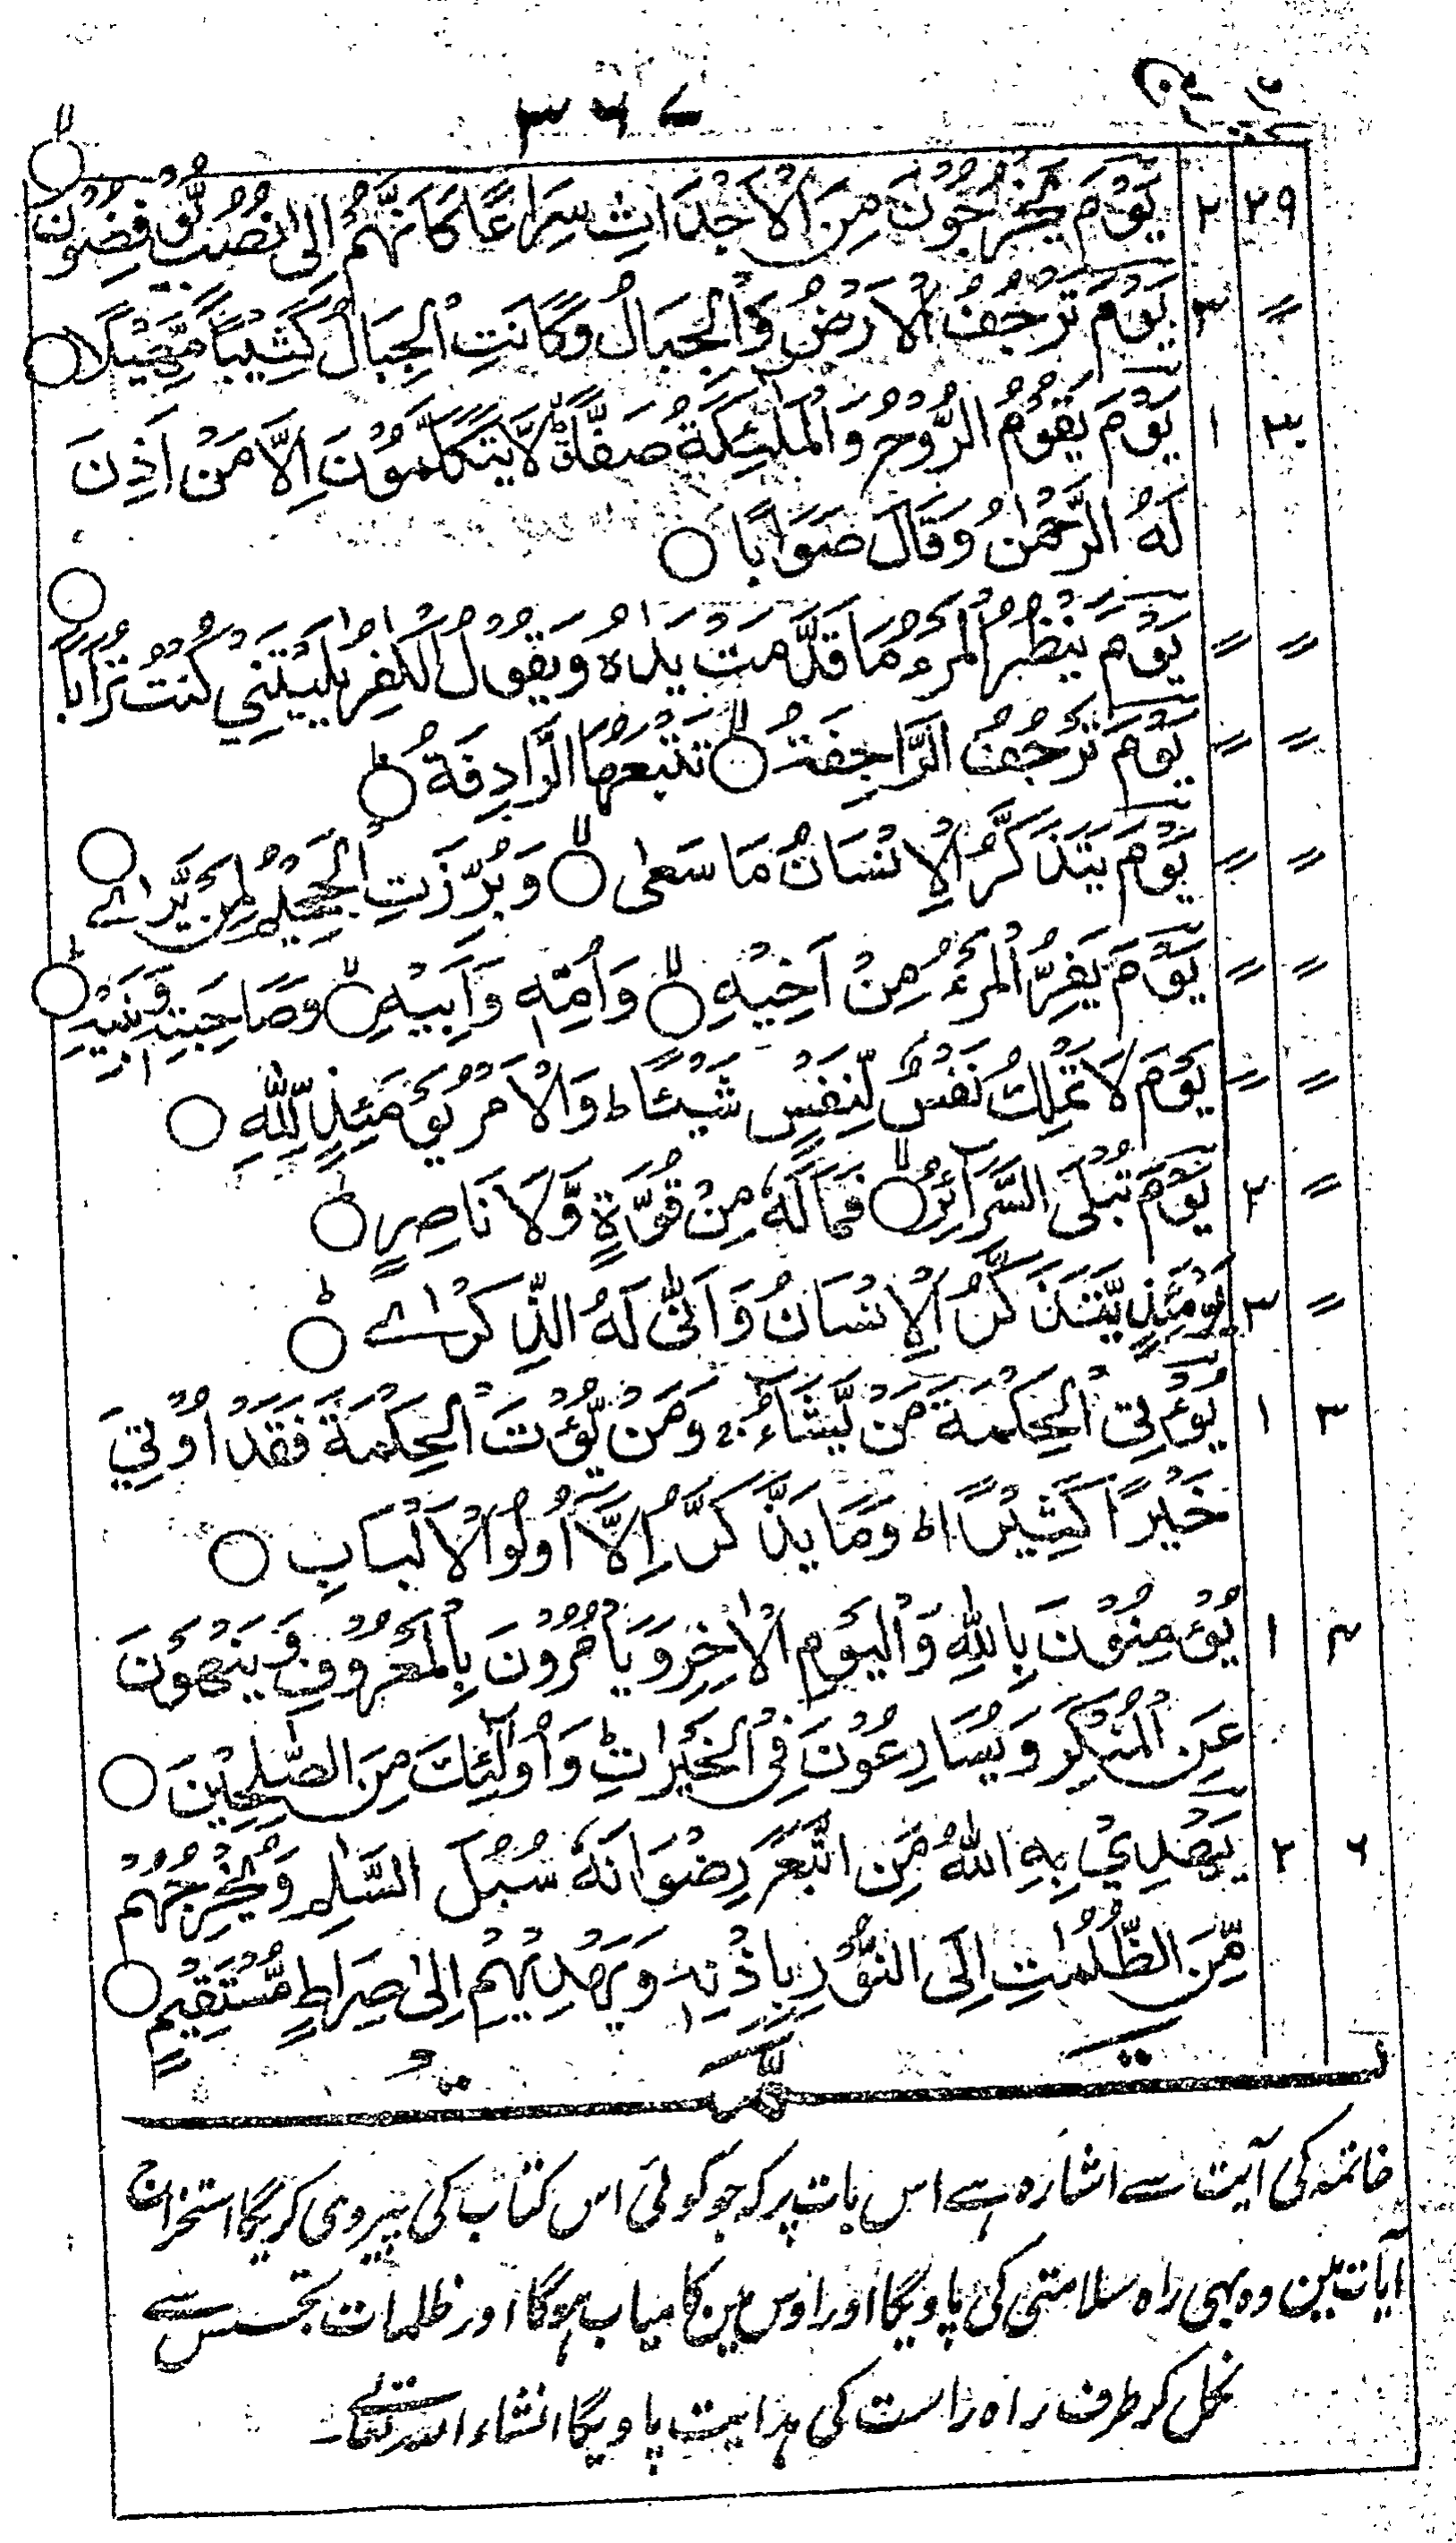 ۳۶۷
۲۹ ۲ یَوْمَ یَخْرُجُوْنَ مِنَ الْاَجْدَاثِ سِرَاعًا کَاَنَّهُمْ اِلٰی نُصُبٍ یُّوْفِضُوْنَ ۙ○
〃 ۳ یَوْمَ تَرْجُفُ الْاَرْضُ وَالْجِبَالُ وَکَانَتِ الْجِبَالُ کَثِیْبًا مَّهِیْلًا ○
۳۰ ۱ یَوْمَ یَقُوْمُ الرُّوْحُ وَالْمَلٰٓئِکَةُ صَفًّا ؕۙ لَّا یَتَکَلَّمُوْنَ اِلَّا مَنْ اَذِنَ
لَهُ الرَّحْمٰنُ وَقَالَ صَوَابًا ○
〃 〃 یَوْمَ یَنْظُرُ الْمَرْءُ مَا قَدَّمَتْ یَدٰهُ وَیَقُوْلُ الْکٰفِرُ یٰلَیْتَنِیْ کُنْتُ تُرَابًا ○
〃 〃 یَوْمَ تَرْجُفُ الرَّاجِفَةُ ۙ○ تَتْبَعُهَا الرَّادِفَةُ ؕ○
〃 〃 یَوْمَ یَتَذَکَّرُ الْاِنْسَانُ مَا سَعٰی ۙ○ وَبُرِّزَتِ الْجَحِیْمُ لِمَنْ یَّرٰے ○
〃 〃 یَوْمَ یَفِرُّ الْمَرْءُ مِنْ اَخِیْهِ ۙ○ وَاُمِّهٖ وَاَبِیْهِ ۙ○ وَصَاحِبَتِهٖ وَبَنِیْهِ ؕ○
〃 〃 یَوْمَ لَا تَمْلِكُ نَفْسٌ لِّنَفْسٍ شَیْئًا ؕ وَالْاَمْرُ یَوْمَئِذٍ لِّلّٰهِ ○
〃 ۲ یَوْمَ تُبْلَی السَّرَآئِرُ ۙ○ فَمَا لَهٗ مِنْ قُوَّةٍ وَّلَا نَاصِرٍ ؕ○
〃 ۳ یَوْمَئِذٍ یَّتَذَکَّرُ الْاِنْسَانُ وَاَنّٰی لَهُ الذِّکْرٰے ؕ○
۳ ۱ یُؤْتِی الْحِکْمَةَ مَنْ یَّشَآءُ ۚ وَمَنْ یُّؤْتَ الْحِکْمَةَ فَقَدْ اُوْتِیَ
خَیْرًا کَثِیْرًا ؕ وَمَا یَذَّکَّرُ اِلَّآ اُولُوا الْاَلْبَابِ ○
۴ ۱ یُؤْمِنُوْنَ بِاللّٰهِ وَالْیَوْمِ الْاٰخِرِ وَیَاْمُرُوْنَ بِالْمَعْرُوْفِ وَیَنْهَوْنَ
عَنِ الْمُنْکَرِ وَیُسَارِعُوْنَ فِی الْخَیْرٰتِ ؕ وَاُولٰٓئِكَ مِنَ الصّٰلِحِیْنَ ○
۶ ۲ یَهْدِیْ بِهِ اللّٰهُ مَنِ اتَّبَعَ رِضْوَانَهٗ سُبُلَ السَّلٰمِ وَیُخْرِجُهُمْ
مِّنَ الظُّلُمٰتِ اِلَی النُّوْرِ بِاِذْنِهٖ وَیَهْدِیْهِمْ اِلٰی صِرَاطٍ مُّسْتَقِیْمٍ ○
خاتمہ کی آیت سے اشارہ ہے اس بات پر کہ جو کوئی اس کتاب کی پیروی کریگا استخراج
آیات مین وہ بھی راہ سلامتی کی پاویگا اور اوس مین کامیاب ہوگا اور ظلمات تجسس سے
نکل کر طرف راہ راست کی ہدایت پاویگا انشاء اللہ تعالے